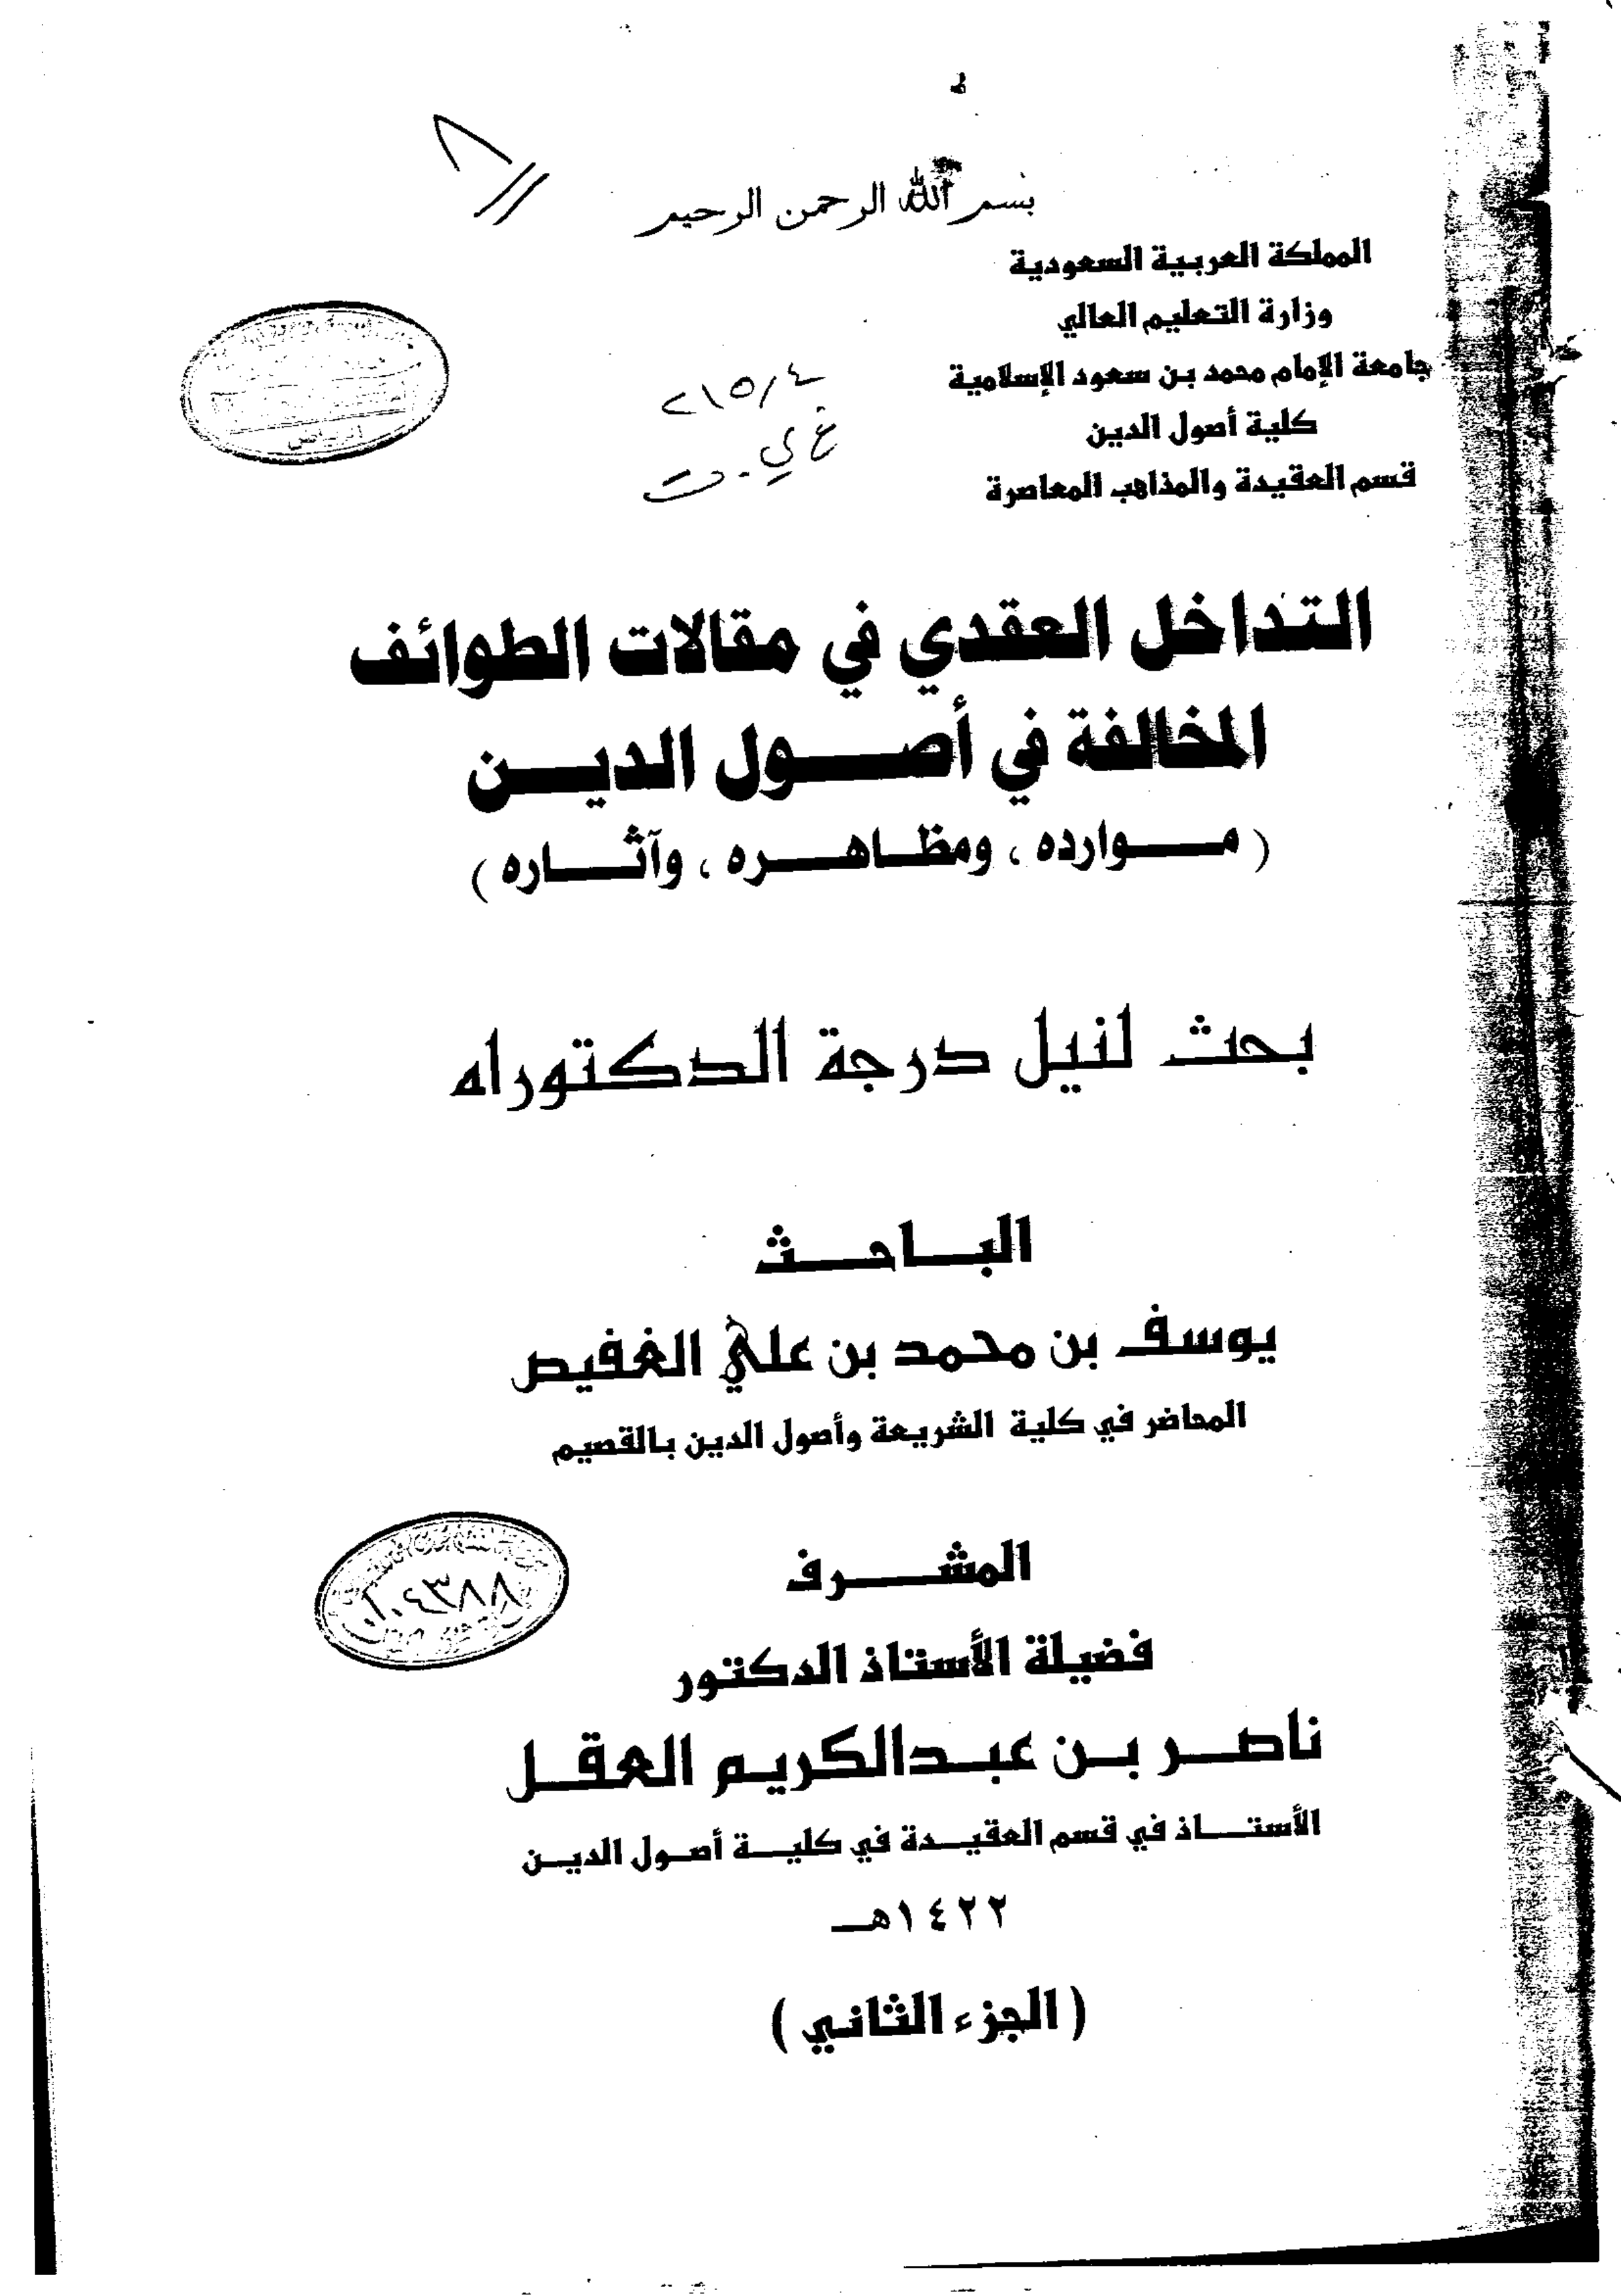 بسم الله الرحمن الرحيم
المملكة العربية السعودية
وزارة التعليم العالي
جامعة الإمام محمد بن سعود الإسلامية
كلية أصول الدين
قسم العقيدة والمذاهب المعاصرة
٢١٥/٤
غ ي . ت
التداخل العقدي في مقالات الطوائف
المخالفة في أصول الدين
( موارده ، ومظاهره ، وآثاره )
بحث لنيل درجة الدكتوراه
الباحث
يوسف بن محمد بن علي الغفيص
المحاضر في كلية الشريعة وأصول الدين بالقصيم
المشرف
فضيلة الأستاذ الدكتور
ناصر بن عبدالكريم العقل
الأستاذ في قسم العقيدة في كلية أصول الدين
١٤٢٢هـ
( الجزء الثاني )